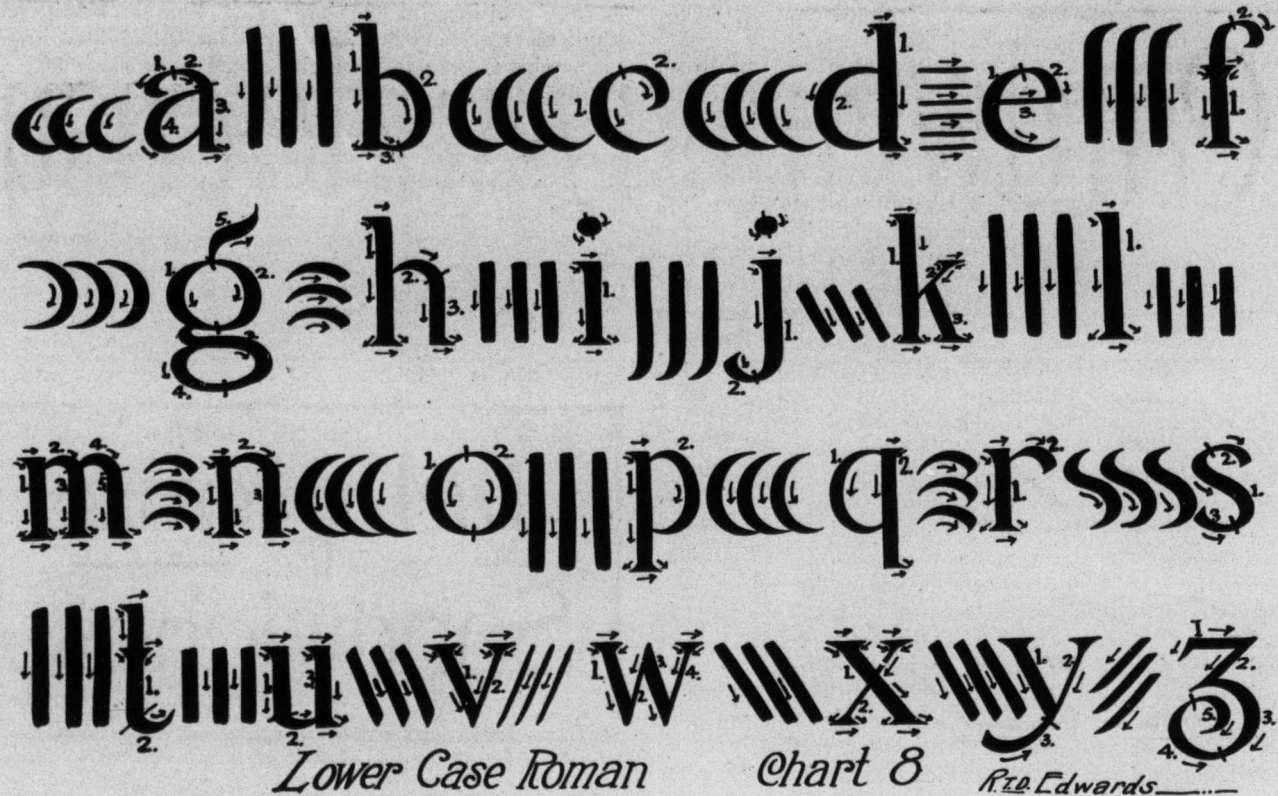 a b c d e f
g h i j k l
m n o p q r s
t u v w x y z
Lower Case Roman Chart 8 R.T.D. Edwards